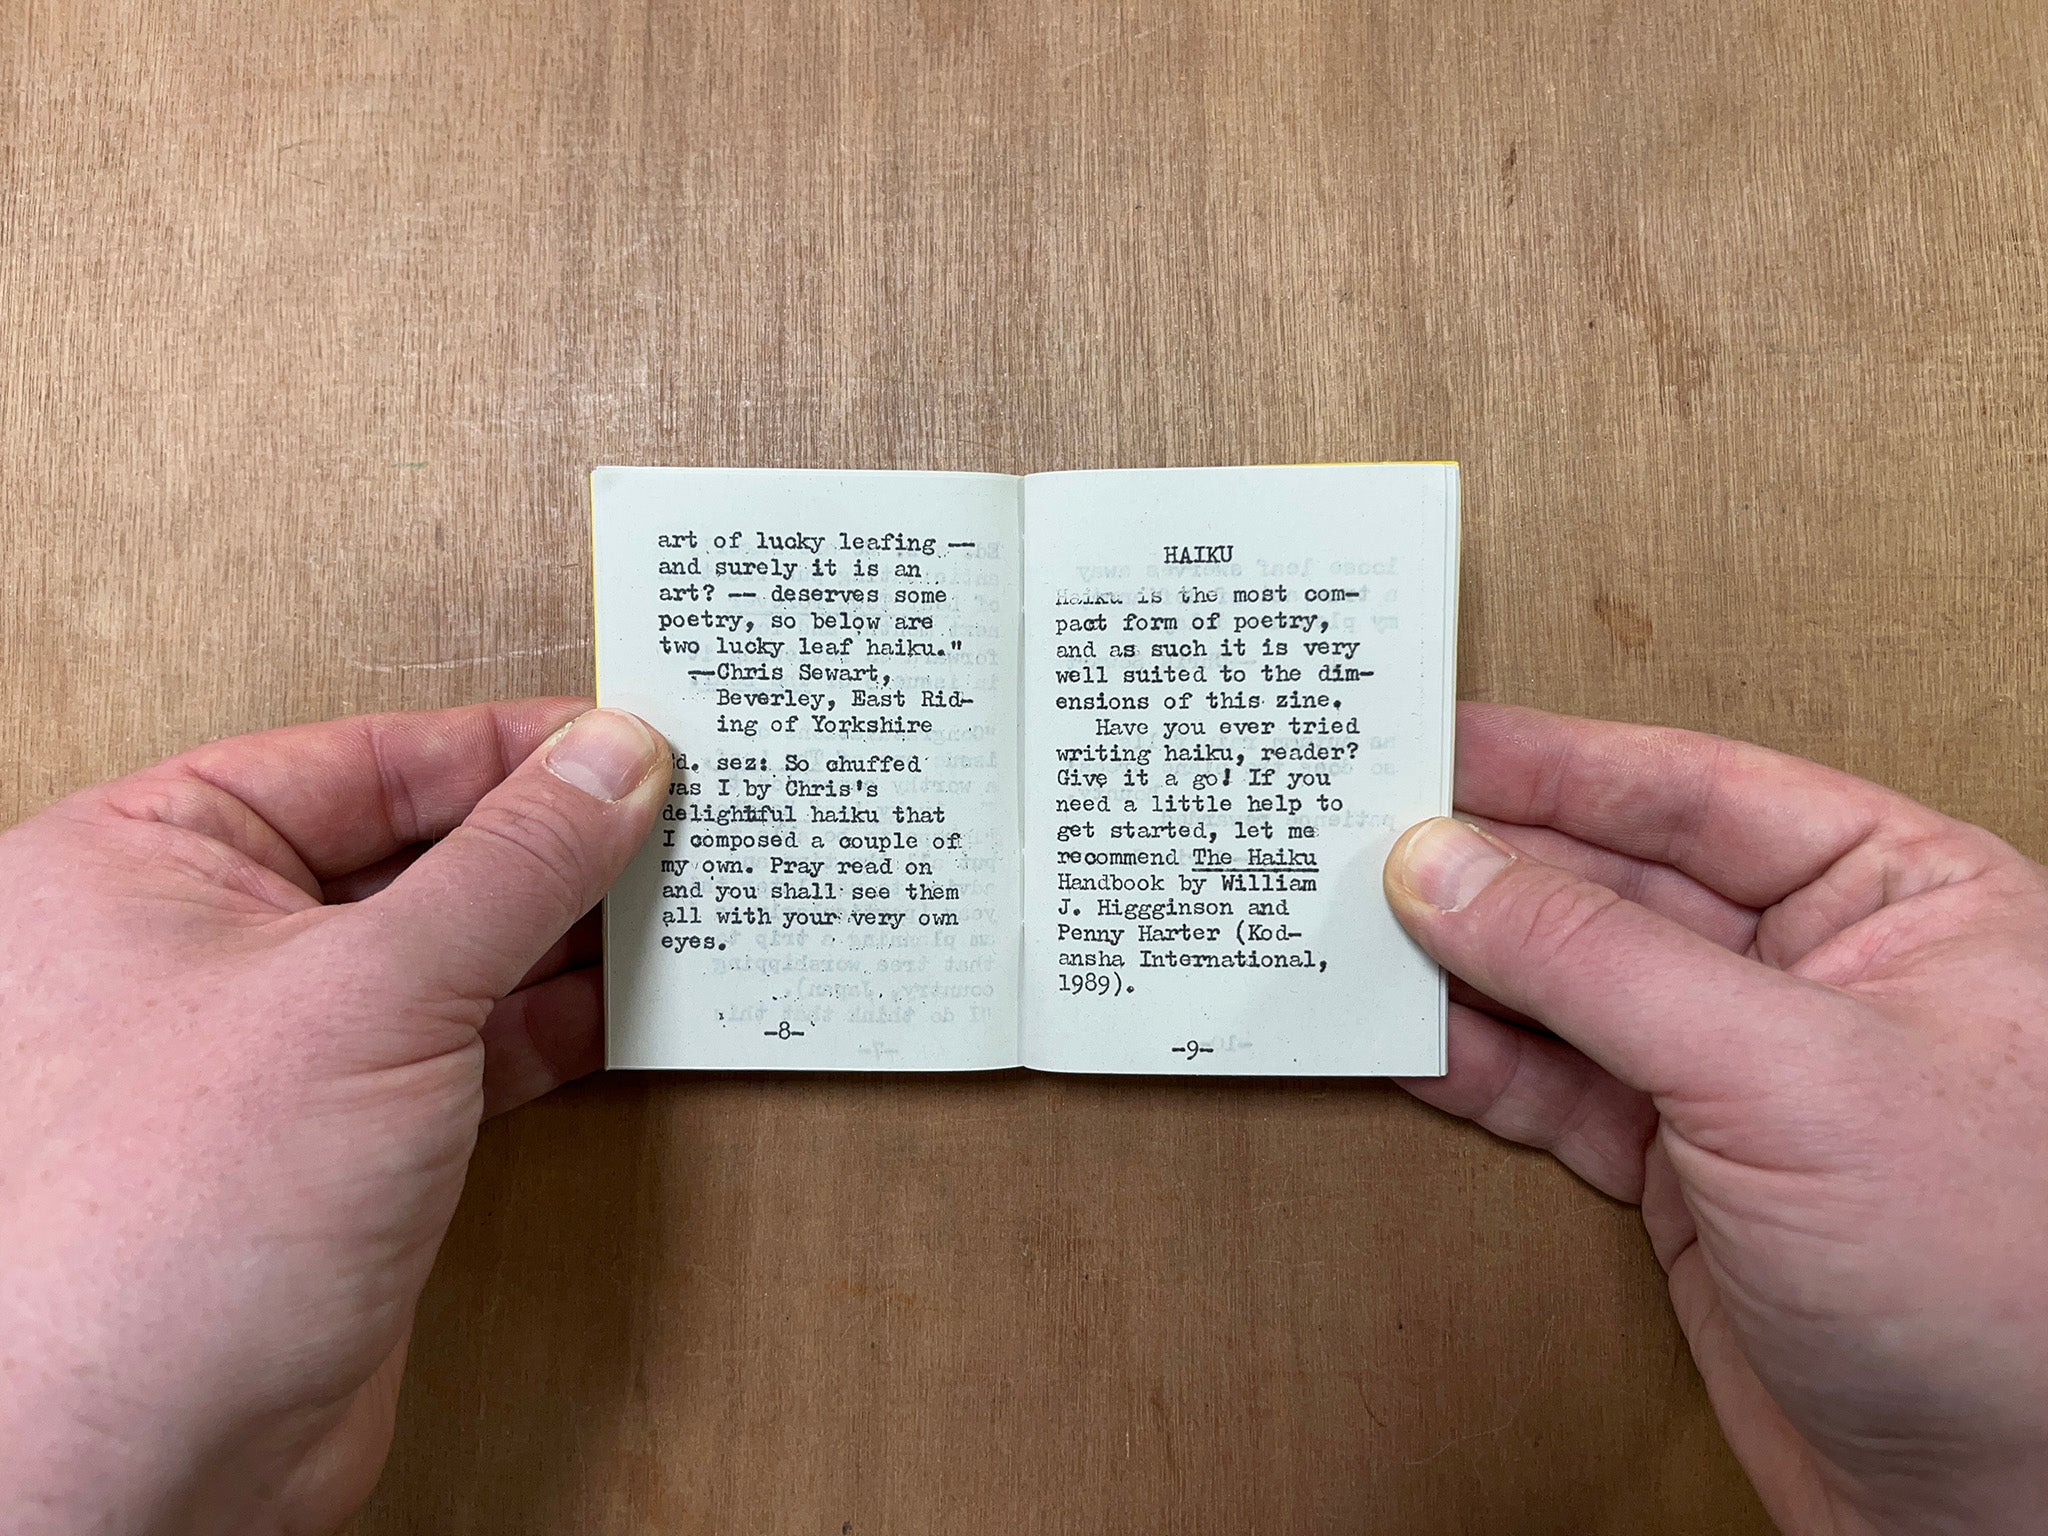 art of lucky leafing --
and surely it is an
art? -- deserves some
poetry, so below are
two lucky leaf haiku."
--Chris Sewart,
Beverley, East Rid-
ing of Yorkshire
Ed. sez: So chuffed
was I by Chris's
delightful haiku that
I composed a couple of
my own. Pray read on
and you shall see them
all with your very own
eyes.
-8-
HAIKU
Haiku is the most com-
pact form of poetry,
and as such it is very
well suited to the dim-
ensions of this zine.
Have you ever tried
writing haiku, reader?
Give it a go! If you
need a little help to
get started, let me
recommend The Haiku
Handbook by William
J. Higgginson and
Penny Harter (Kod-
ansha International,
1989).
-9-